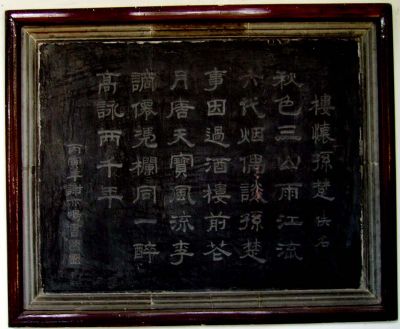 樓懷孫楚 佚名
秋色三山雨江流
六代烟偶談孫楚
事因過酒樓前花
月唐天寶風流李
謫僊凴欄同一醉
高詠兩千年
丙寅年謝